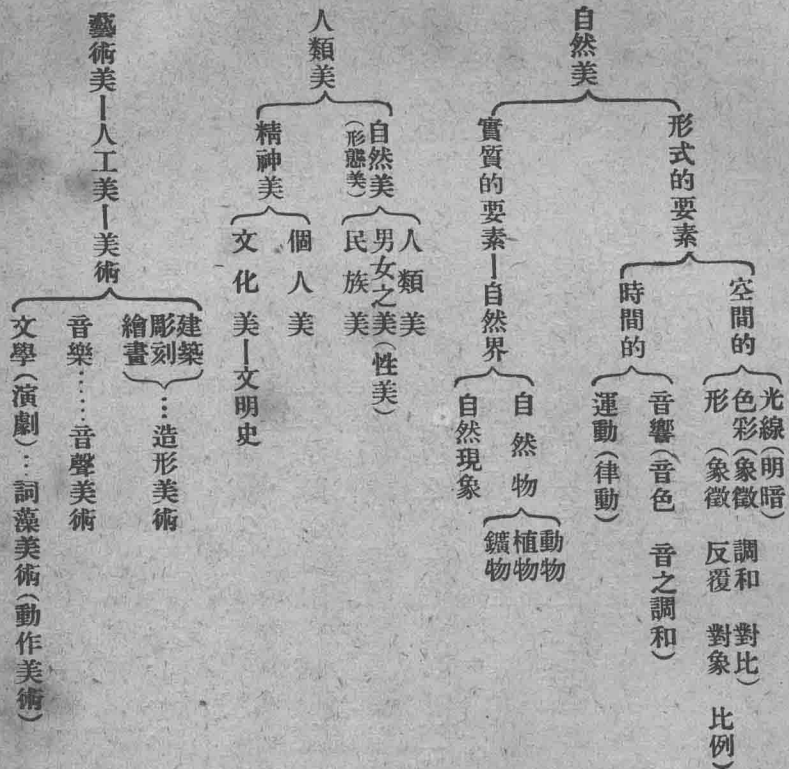 自然美
形式的要素
空間的
光線(明暗)
色彩(象徵 調和 對比)
形(象徵 反覆 對象 比例)
時間的
音響(音色 音之調和)
運動(律動)
實質的要素—自然界
自然物
動物
植物
鑛物
自然現象
人類美
自然美
(形態美)
人類美
男女之美(性美)
民族美
精神美
個人美
文化美—文明史
藝術美—人工美—美術
建築
彫刻
繪畫
…造形美術
音樂……音聲美術
文學(演劇)…詞藻美術(動作美術)